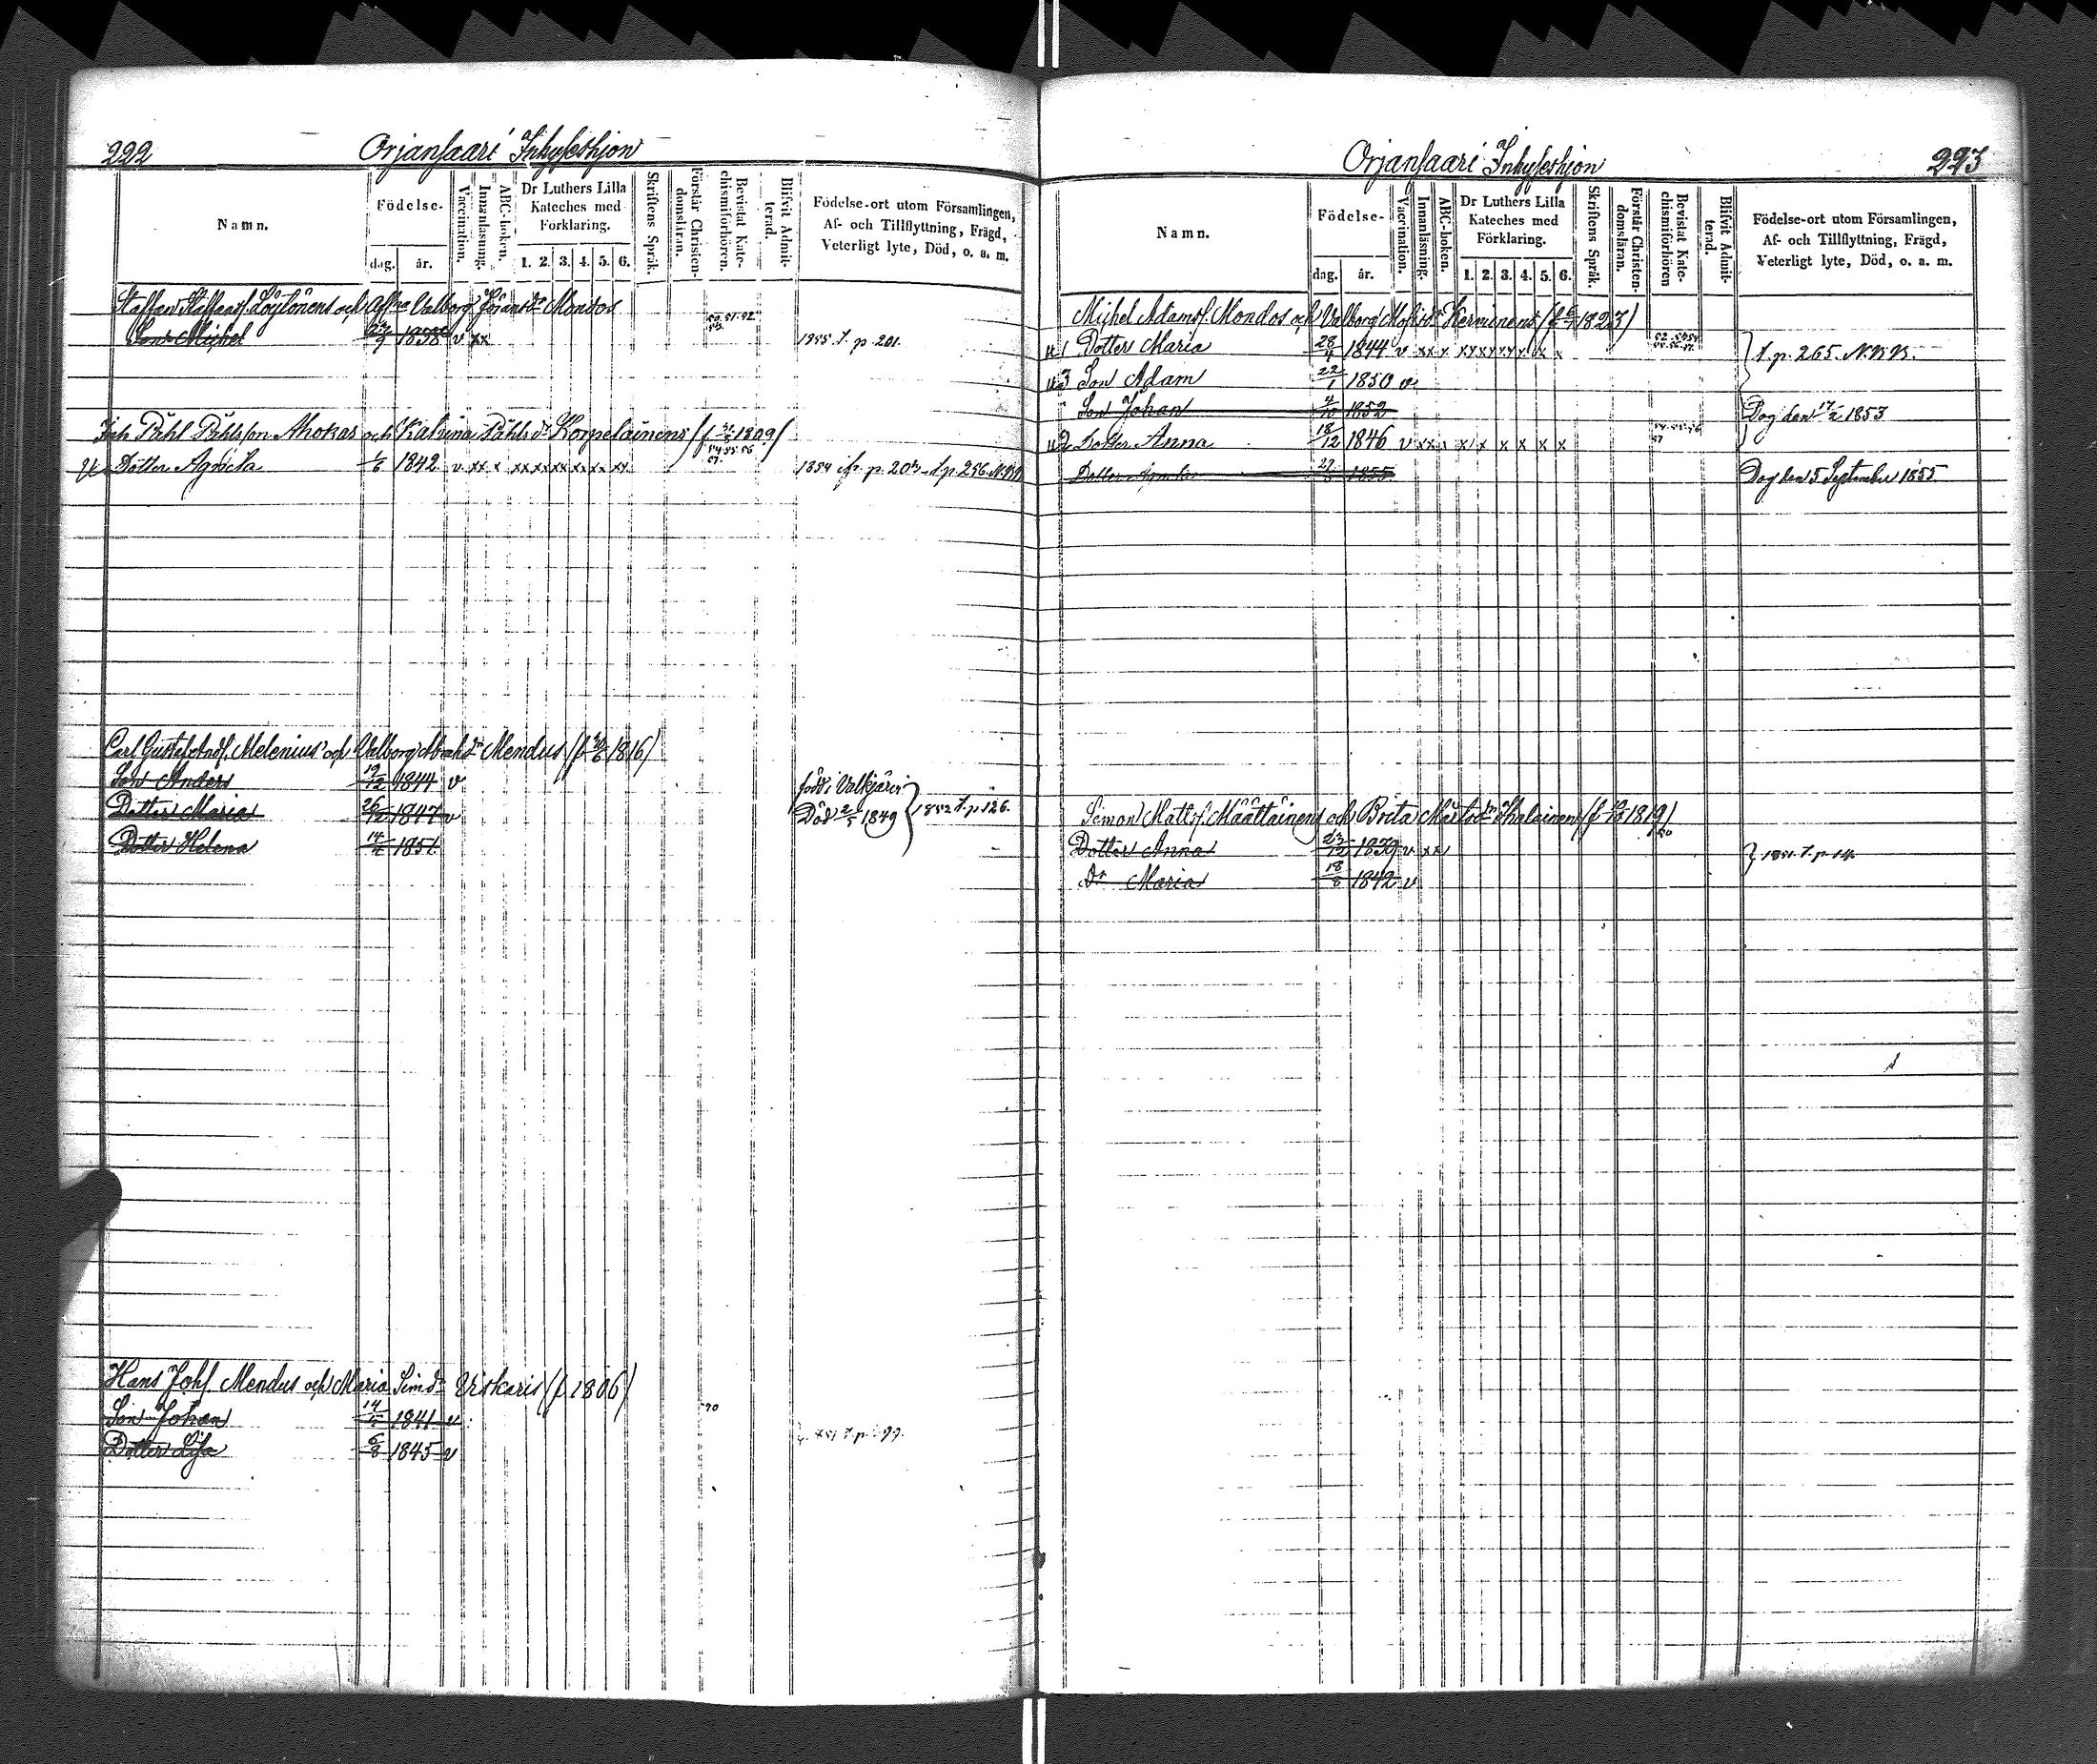 222 Orjansaari Inhyseshjon
Namn.
Födelse-
dag. år.
Vaccination.
Innanläsning.
ABC-boken.
Dr Luthers Lilla Kateches med Förklaring.
1. 2. 3. 4. 5. 6.
Skriftens Språk.
Förstår Christendomsläran.
Bevistat Katechismiförhören.
Blifvit Admitterad.
Födelse-ort utom Församlingen,
Af- och Tillflyttning, Frägd,
Veterligt lyte, Död, o. a. m.
Staffan Staffansf. Löylönens och Valborg Göransdr Mondos
Son Michel 1838 v xx 1855. T. p. 201.
Inh Påhl Påhlsson Ahokas och Katrina Påhlsdr Korpelainens (f 1809)
54.55.56
57.
Dotter Agneta 1/6 1842 v xx x xx xx xx x x xx 1854 fr. p. 203 T. p. 256. N.KB.
Carl Gustaf Melenius och Valborg Abrahdr Mendus (f 1816)
Son Anders 19/12 1844 v född i Valkjärvi
Dotter Maria 26/12 1847 v Död 2/5 1849 } 1852 T. p. 126.
Dotter Helena 1851
Hans Johs. Mendus och Maria Simdr Viskaris (f. 1806)
Son Johan 1841 v
Dotter Lisa 6/8 1845 v
Orjansaari Inhyseshjon 223
Namn.
Födelse-
dag. år.
Vaccination.
Innanläsning.
ABC-boken.
Dr Luthers Lilla Kateches med Förklaring.
1. 2. 3. 4. 5. 6.
Skriftens Språk.
Förstår Christendomsläran.
Bevistat Katechismiförhören
Blifvit Admitterad.
Födelse-ort utom Församlingen,
Af- och Tillflyttning, Frägd,
Veterligt lyte, Död, o. a. m.
Michel Adamsf. Mondos och Valborg Kerminens (f 1823)
1 Dotter Maria 28/4 1844 v xx x } T. p. 265. N.KB.
3 Son Adam 22/1 1850 v
Son Johan 4/10 1852 Dog den 17/2 1853
2 Dotter Anna 18/12 1846 v xx x x x x x x x
Dotter 1855 Dog den 5 September 1855
Simon Mattsf. Määttäinens och Brita Mårtsdr Ihalainen (f 1819)
Dotter Anna 23/12 1839 v xx } 1851. T. p. 14.
Dr Maria 18/8 1842 v